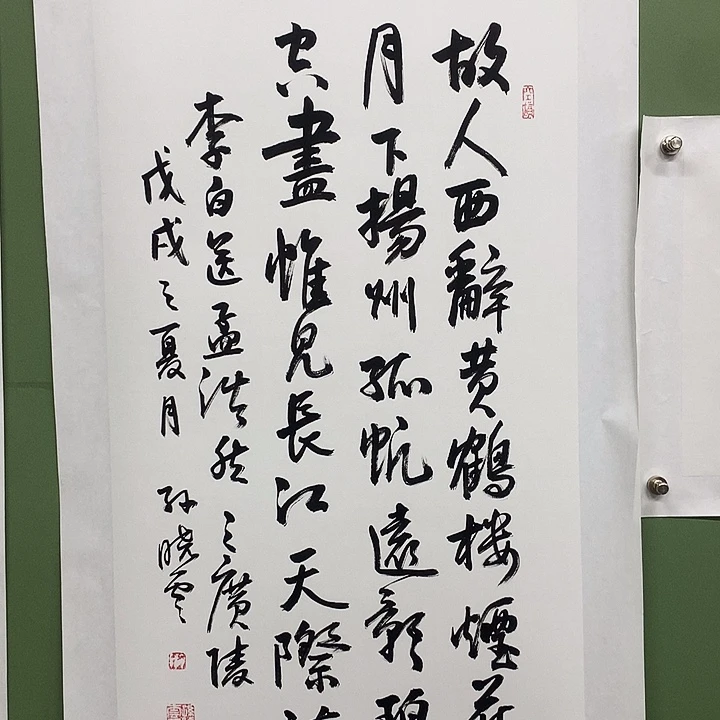 故人西辭黄鶴楼煙花
月下揚州孤帆遠影碧
空盡惟見長江天際
李白送孟浩然之廣陵
戊戌之夏月 孙晓雲